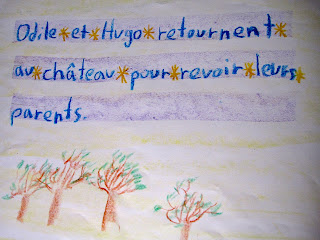 Odile et Hugo retournent
au château pour revoir leurs
parents.